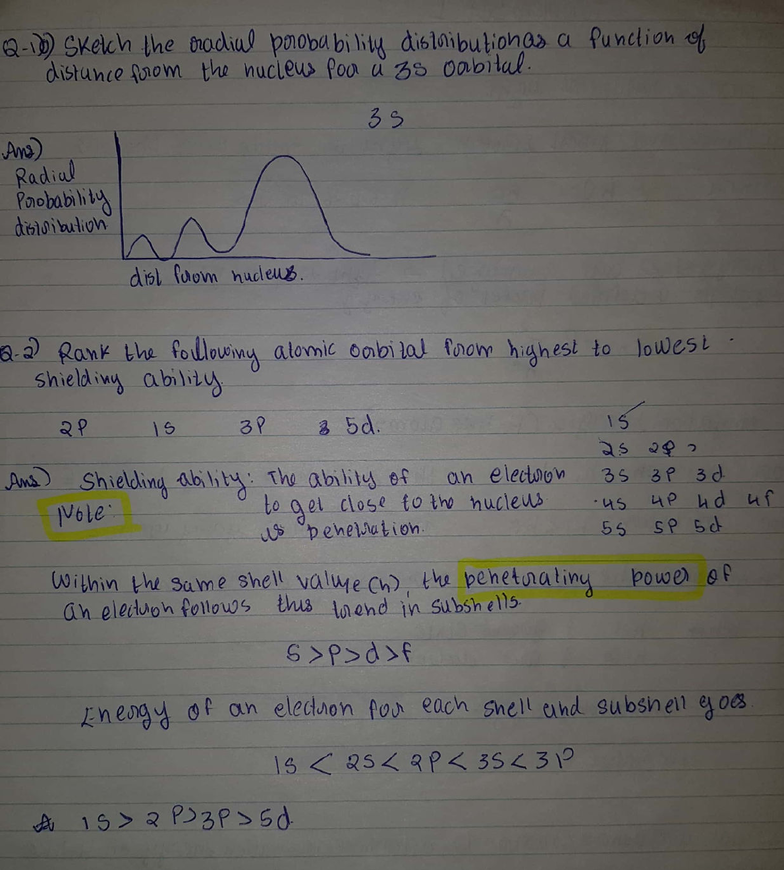 Q-1b) Sketch the radial porobability distoributionas a function of
distance from the nucleus for a 3s orbital.
3s
Ans)
Radial
Porobability
distoribution
dist from nucleus.
Q-2) Rank the following atomic orbital from highest to lowest
shielding ability.
2p 1s 3p 5d.
1s
2s 2p
3s 3p 3d
4s 4p 4d 4f
5s 5p 5d
Ans) Shielding ability: The ability of an electron
to get close to the nucleus
is penetration.
Note:
Within the same shell value (n), the penetorating power of
an electron follows this trend in subshells.
s > p > d > f
Energy of an electron for each shell and subshell goes
1s < 2s < 2p < 3s < 3p
1s > 2p > 3p > 5d